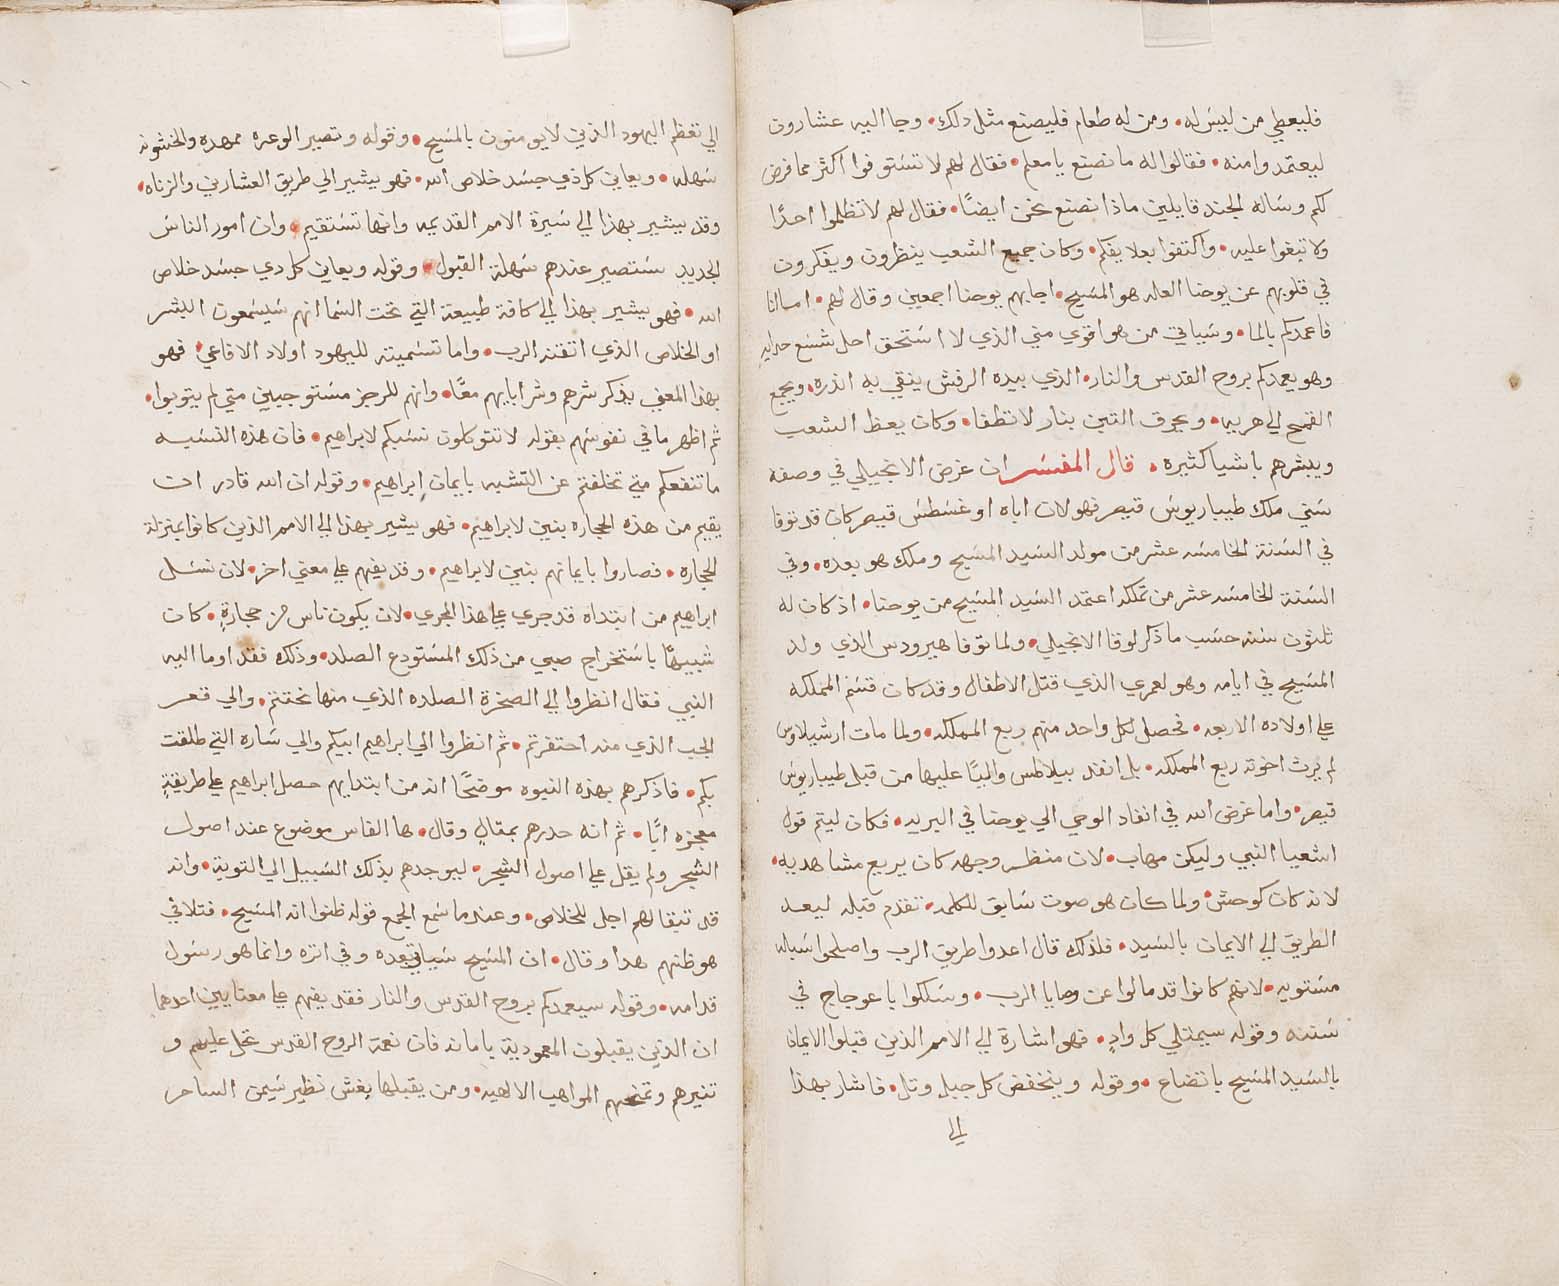 فليعطي من ليس له • ومن له طعام فليصنع مثل دلك • وجا اليه عشارون
ليعتمدوا منه • فقالوا له ما نصنع يا معلم • فقال لهم لا تستوفوا اكثر مما فرض
لكم وساله الجند قايلين ماذا نصنع نحن ايضًا • فقال لهم لا تظلموا احدًا
ولا تبغوا عليه • واكتفوا بعلايفكم • وكان جميع الشعب ينظرون ويفكرون
في قلوبهم عن يوحنا العله هو المسيح • اجابهم يوحنا اجمعين وقال لهم • اما انا
فاعمدكم بالما • وسياتي من هو اقوي مني الذي لا استحق احل شسع حدايه
وهو يعمدكم بروح القدس والنار • الذي بيده الرفش ينقي به اندره • ويجمع
القمح الي هريه • ويحرق التبن بنار لا تطفا • وكان يعظ الشعب
ويبشرهم باشيا كثيره • قال المفسر ان غرض الانجيلي في وصفه
سني ملك طيباريوس قيصر فهو لان اباه اوغسطس قيصر كان قد توفا
في السنة الخامسه عشر من مولد السيد المسيح وملك هو بعده • وفي
السنة الخامسه عشر من تملكه اعتمد السيد المسيح من يوحنا • اذ كان له
ثلثون سنه حسب ما ذكر لوقا الانجيلي • ولما توفا هيرودس الذي ولد
المسيح في ايامه وهو لعمري الذي قتل الاطفال وقد كان قسم المملكه
علي اولاده الاربعه • فحصل لكل واحد منهم ربع المملكه • ولما مات ارشيلاوس
لم يرث اخوته ربع المملكه • بل انفد بيلاطس واليًا عليها من قبل طيباريوس
قيصر • واما غرض الله في انفاد الوحي الي يوحنا في البريه • فكان ليتم قول
اشعيا النبي وليكن مهاب • لان منظر وجهه كان يريع مشاهديه •
لانه كان كوحش • ولما كان هو صوت سابق للكلمه • تقدم قبله ليعد
الطريق الي الايمان بالسيد • فلذلك قال اعدوا طريق الرب واصلحوا سبله
مستويه • لانهم كانوا قد مالوا عن وصايا الرب • وسلكوا باعوجاج في
سننه وقوله سيمتلي كل وادٍ • فهو اشارة الي الامم الذين قبلوا الايمان
بالسيد المسيح باتضاع • وقوله وينخفض كل جبل وتل • فاشار بهذا
الي
الي تعظم اليهود الذين لا يومنون بالمسيح • وقوله وتصير الوعره ممهده والخشونه
سهله • ويعاين كل ذي جسد خلاص الله • فهو يشير الي طريق العشارين والزناه •
وقد يشير بهذا الي سيرة الامم القديمه وانها تستقيم • وان امور الناس
الجديد ستصير عندهم سهلة القبول • وقوله ويعاين كل دي جسد خلاص
الله • فهو يشير بهذا الي كافة طبيعة التي تحت السما انهم سيسمعون البشر
او الخلاص الذي اتقنه الرب • واما تسميته لليهود اولاد الافاعي • فهو
بهذا المعني يذكر شرهم وشر ابايهم معًا • وانهم للرجز مستوجبين متي لم يتوبوا •
ثم اظهر ما في نفوسهم بقوله لا تتوكلون نسبكم لابراهيم • فان هذه النسبه
ما تنفعكم متي تخلفتم عن التشبه بايمان ابراهيم • وقوله ان الله قادر ان
يقيم من هذه الحجاره بنين لابراهيم • فهو يشير بهذا الي الامم الذين كانوا بمنزلة
الحجاره • فصاروا بايمانهم بنين لابراهيم • وقد يفهم علي معني اخر • لان نسل
ابراهيم من ابتداه قد جري علي هذا المجري • لان يكون ناس من حجارةٍ • كان
شبيهًا باستخراج صبي من ذلك المستودع الصلد • وذلك فقد اوما اليه
النبي فقال انظروا الي الصخرة الصلده الذي منها نحتتم • والي قعر
الجب الذي منه احتفرتم • ثم انظروا الي ابراهيم ابيكم والي ساره التي طلقت
بكم • فاذكرهم بهذه النبوه موضحًا انه من ابتدايهم حصل ابراهيم علي طريقةٍ
معجزه ابًا • ثم انه حدرهم بمقالٍ وقال • ها الفاس موضوع عند اصول
الشجر ولم يقل علي اصول الشجر • ليوجدهم بذلك السبيل الي التوبة • وانه
قد تبقا لهم اجل للخلاص • وعندما سمع الجمع قوله ظنوا انه المسيح • فتلافي
هو ظنهم هدا وقال • ان المسيح سياتي بعده وفي اثره وانما هو رسول
قدامه • وقوله سيعمدكم بروح القدس والنار فقد يفهم علي معنايين احدهما
ان الذين يقبلون المعمودية بامانه فان نعمة الروح القدس تحل عليهم و
تنيرهم وتمنحهم المواهب الالهيه • ومن يقبلها بغش نظير سيمن الساحر